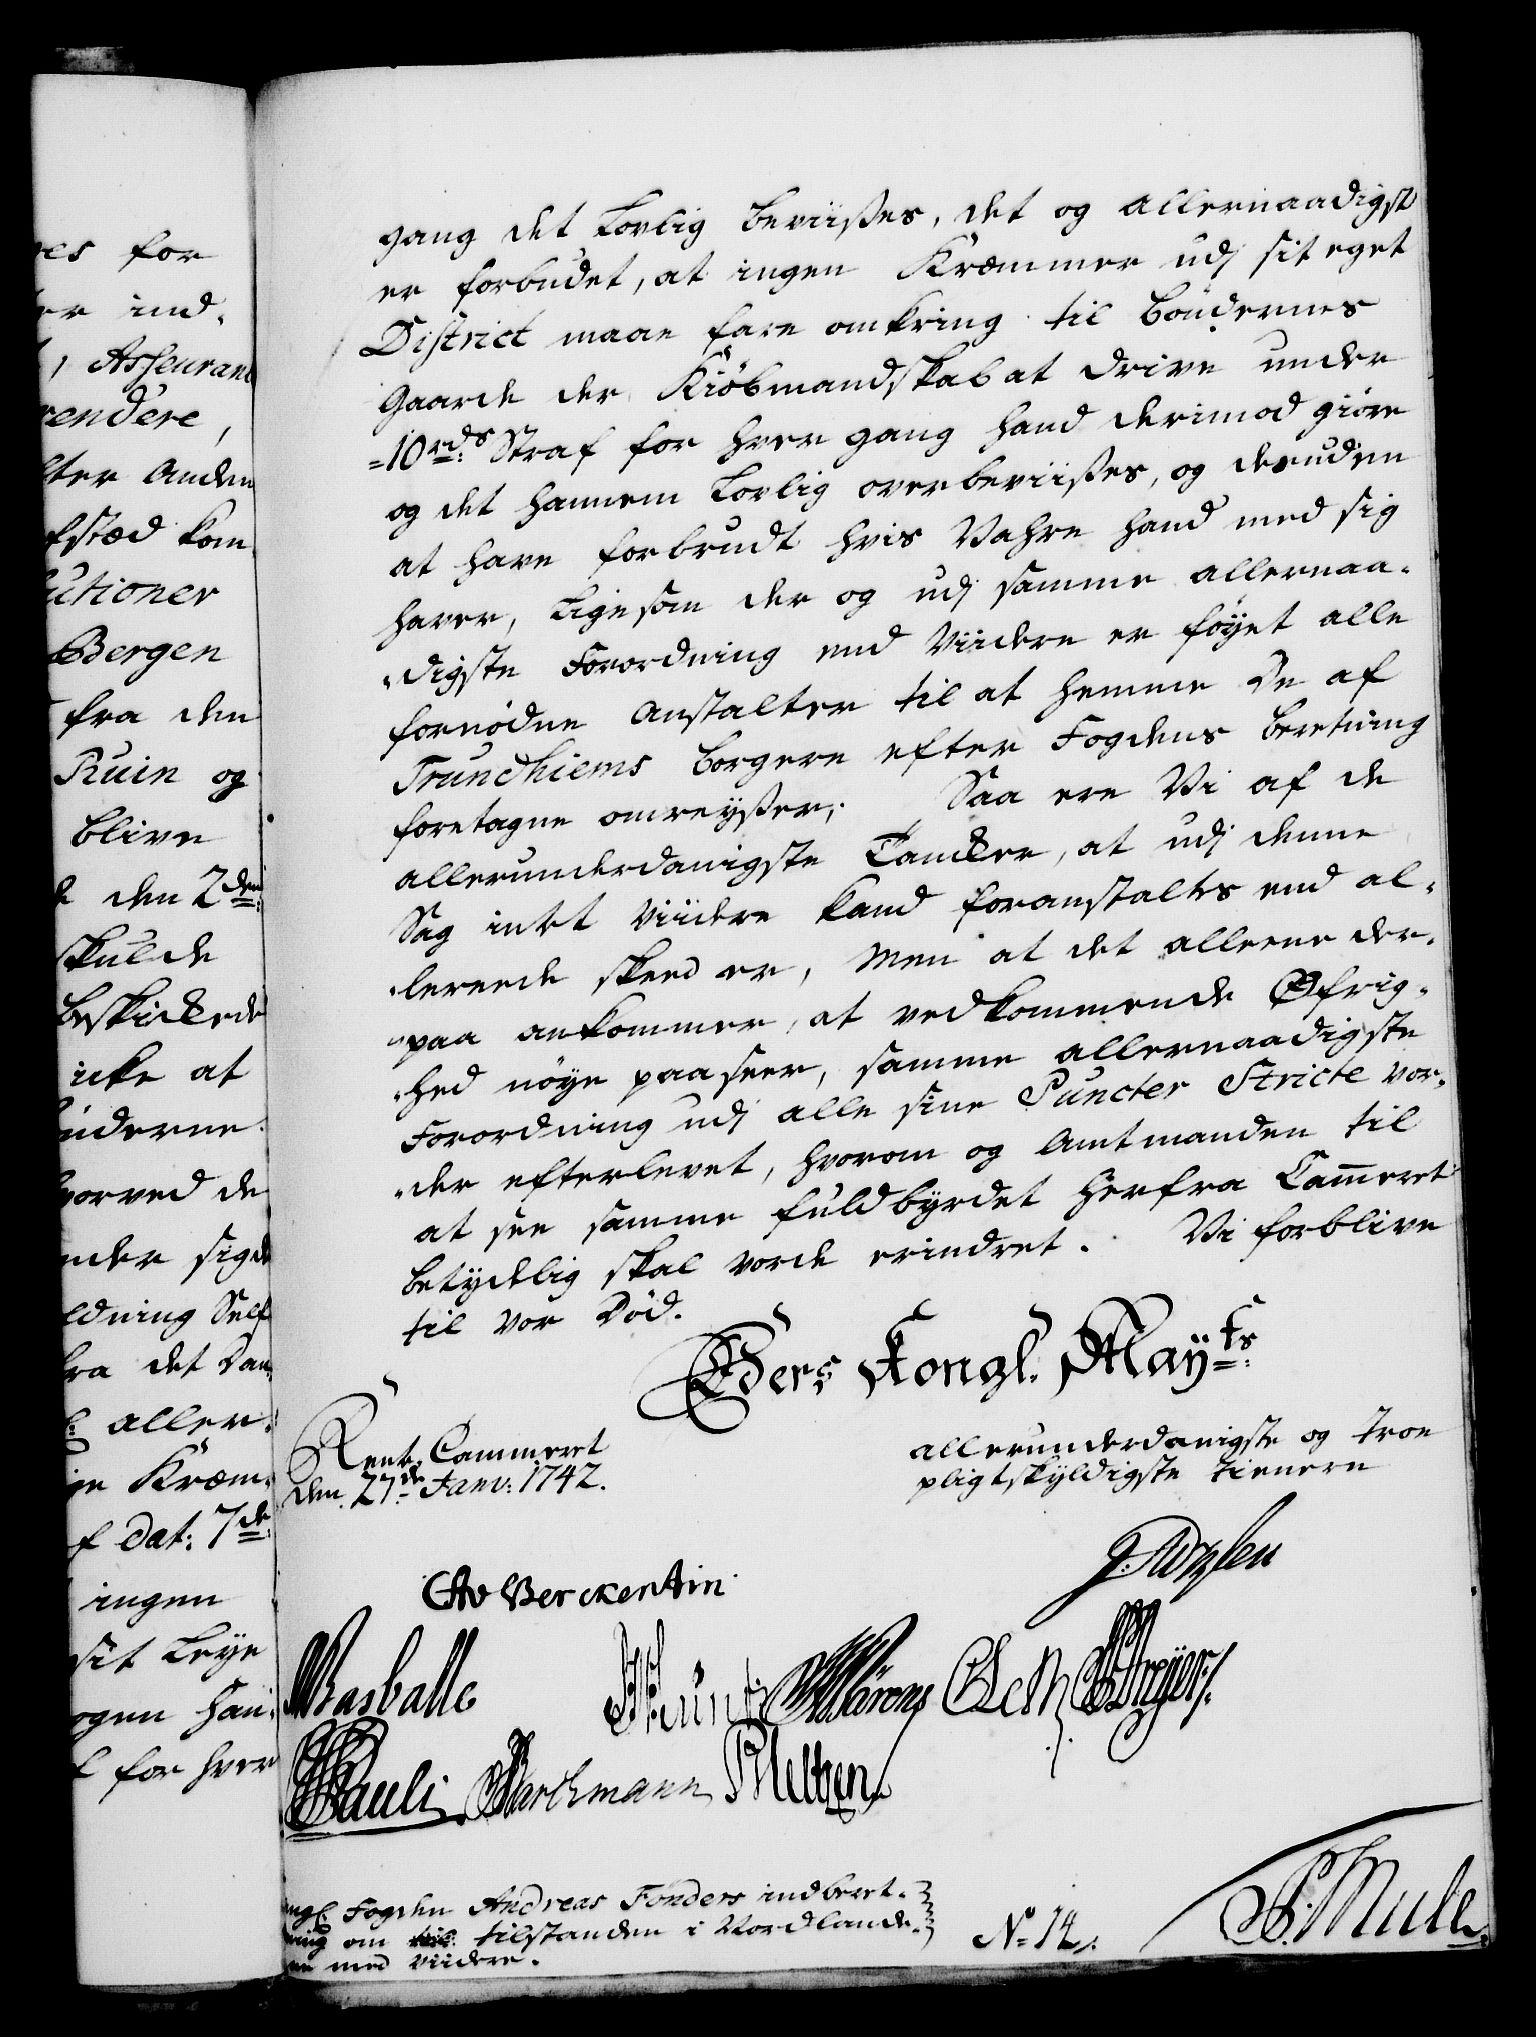 es for
er ind-
, Asseuran
rendere,
ter anden
fstæd kom
utioner
Bergen
fra den
Ruin og
blive
den 2den
skulde
beskickede
icke at
nderne
hvorved de
nder sigde
ldning Self
fra det Dan
aller-
ge Kræm-
af Dat: 7de
ingen
sit Leye
ogen han-
for hver
gang det Lovlig beviisses, det og allernaadigst
er forbudet, at ingen Kræmmer udj sit eget
District maae fare omkring til bøndernes
Gaarde der Kiöbmandskab at drive under
=10 rds Straf for hver gang hand derimod giöre
og det hannem Lovlig overbeviisses, og desuden
at have forbrudt hvis Vahre hand med sig
haver, ligesom der og udj samme allernaa-
digste Forordning end Viidere er föyet alle
fornödne Anstalter til at hemme De af
Trundhiems borgere efter Fogdens beretning
foretagne omreysser; Saa ere Vi af de
allerunderdanigste Tancker, at udj denne
Sag intet Viidere kand foranstaltes end al-
lereede skeed er, Men at det alleene der-
paa ankommer, at vedkommende Øfrig-
hed nöye paaseer, samme allernaadigste
Forordning udj alle sine Puncter Stricte vor-
der efterlevet, hvorom og Amtmanden til
at see samme fuldbyrdet herfra Cammeret
betydelig skal vorde erindret. Vi forblive
til vor Död.
Eders Kongl. Mayts
Rente Cammeret
den 27de Janv: 1742.
allerunderdanigste og troe
pligtskyldigste tienere
CAv Berckentin
Basballe Wörens Leth Dreyer
Pauli Barchmann
Fogden Andreas Fonders indberet-
ning om tilstanden i Nordlande-
ne med Viidere.
No 14.
Mule